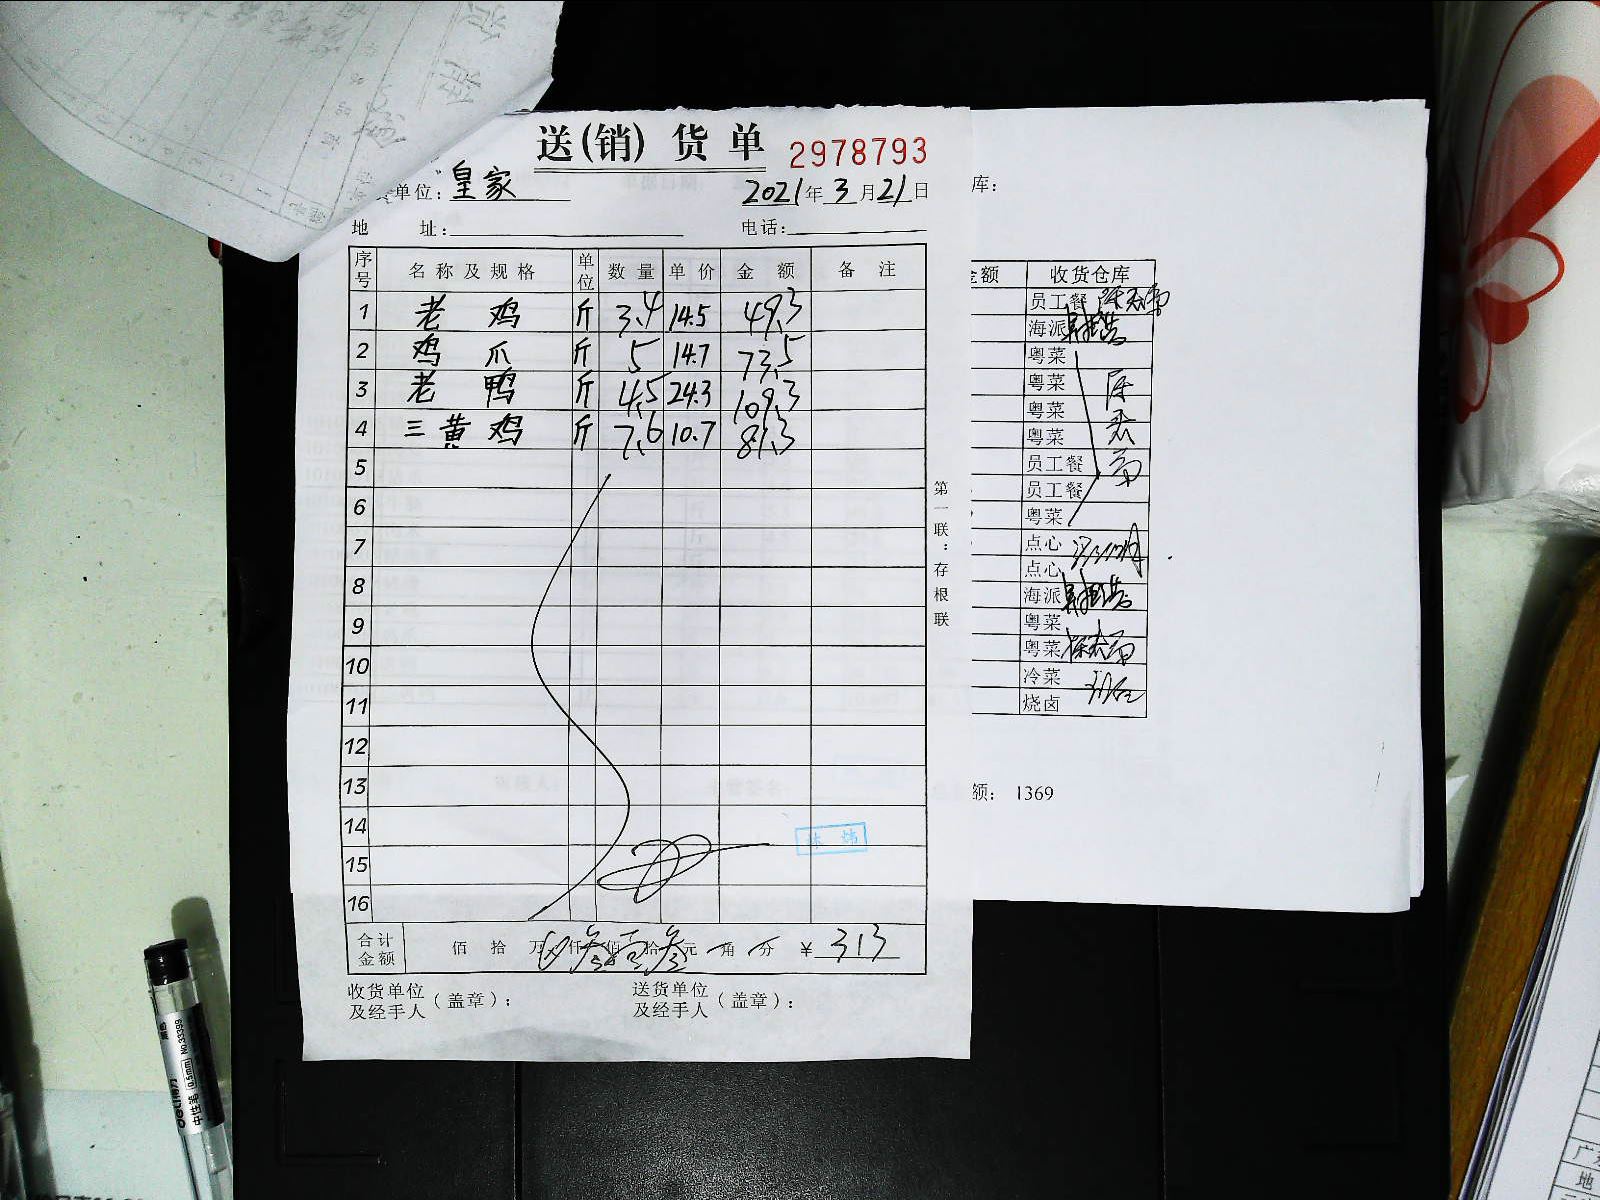 送(销)货单 2978793
单位: 皇家 2021年3月21日
地 址: 电话:
序号 名称及规格 单位 数量 单价 金额 备注
1 老鸡 斤 3.4 14.5 49.3
2 鸡爪 斤 5 14.7 73.5
3 老鸭 斤 4.5 24.3 109.3
4 三黄鸡 斤 7.6 10.7 81.3
5
6
7
8
9
10
11
12
13
14
15
16
合计金额 佰 拾 万 仟 叁佰壹拾叁元 角 分 ¥ 313
收货单位及经手人(盖章): 送货单位及经手人(盖章):
第一联:存根联
库:
金额 收货仓库
员工餐
海派
粤菜
粤菜
粤菜
粤菜
员工餐
员工餐
粤菜
点心
点心
海派
粤菜
粤菜
冷菜
烧卤
额: 1369
deli得力 0.5mm No.33399
中性笔